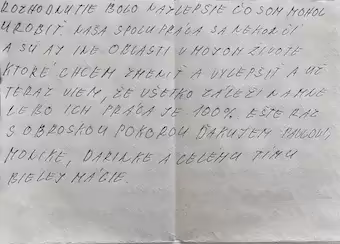 ROZHODNUTIE BOLO NAJLEPŠIE ČO SOM MOHOL
UROBIŤ. NAŠA SPOLUPRÁCA SA NEKONČÍ
A SÚ AJ INÉ OBLASTI V MOJOM ŽIVOTE
KTORÉ CHCEM ZMENIŤ A VYLEPŠIŤ A UŽ
TERAZ VIEM, ŽE VŠETKO ZÁLEŽÍ NA MNE
LEBO ICH PRÁCA JE 100%. EŠTE RAZ
S OBROSKOU POKOROU ĎAKUJEM
MONIKE, DARINKE A CELÉMU TÍMU
BIELEJ MÁGIE.